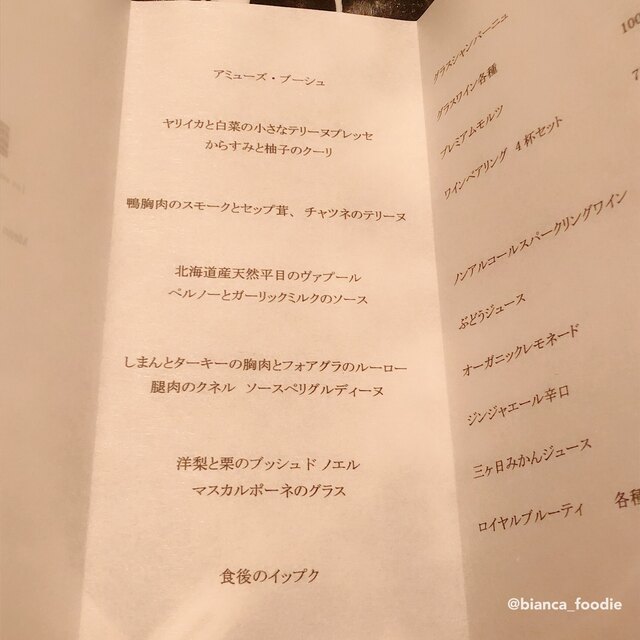 アミューズ・ブーシュ
ヤリイカと白菜の小さなテリーヌプレッセ
からすみと柚子のクーリ
鴨胸肉のスモークとセップ茸、チャツネのテリーヌ
北海道産天然平目のヴァプール
ペルノーとガーリックミルクのソース
しまんとターキーの胸肉とフォアグラのルーロー
腿肉のクネル ソースペリグルディーヌ
洋梨と栗のブッシュド ノエル
マスカルポーネのグラス
食後のイップク
グラスシャンパーニュ
グラスワイン各種
プレミアムモルツ
ワインペアリング 4杯セット
ノンアルコールスパークリングワイン
ぶどうジュース
オーガニックレモネード
ジンジャエール辛口
三ヶ日みかんジュース
ロイヤルブルーティ 各種
@bianca_foodie